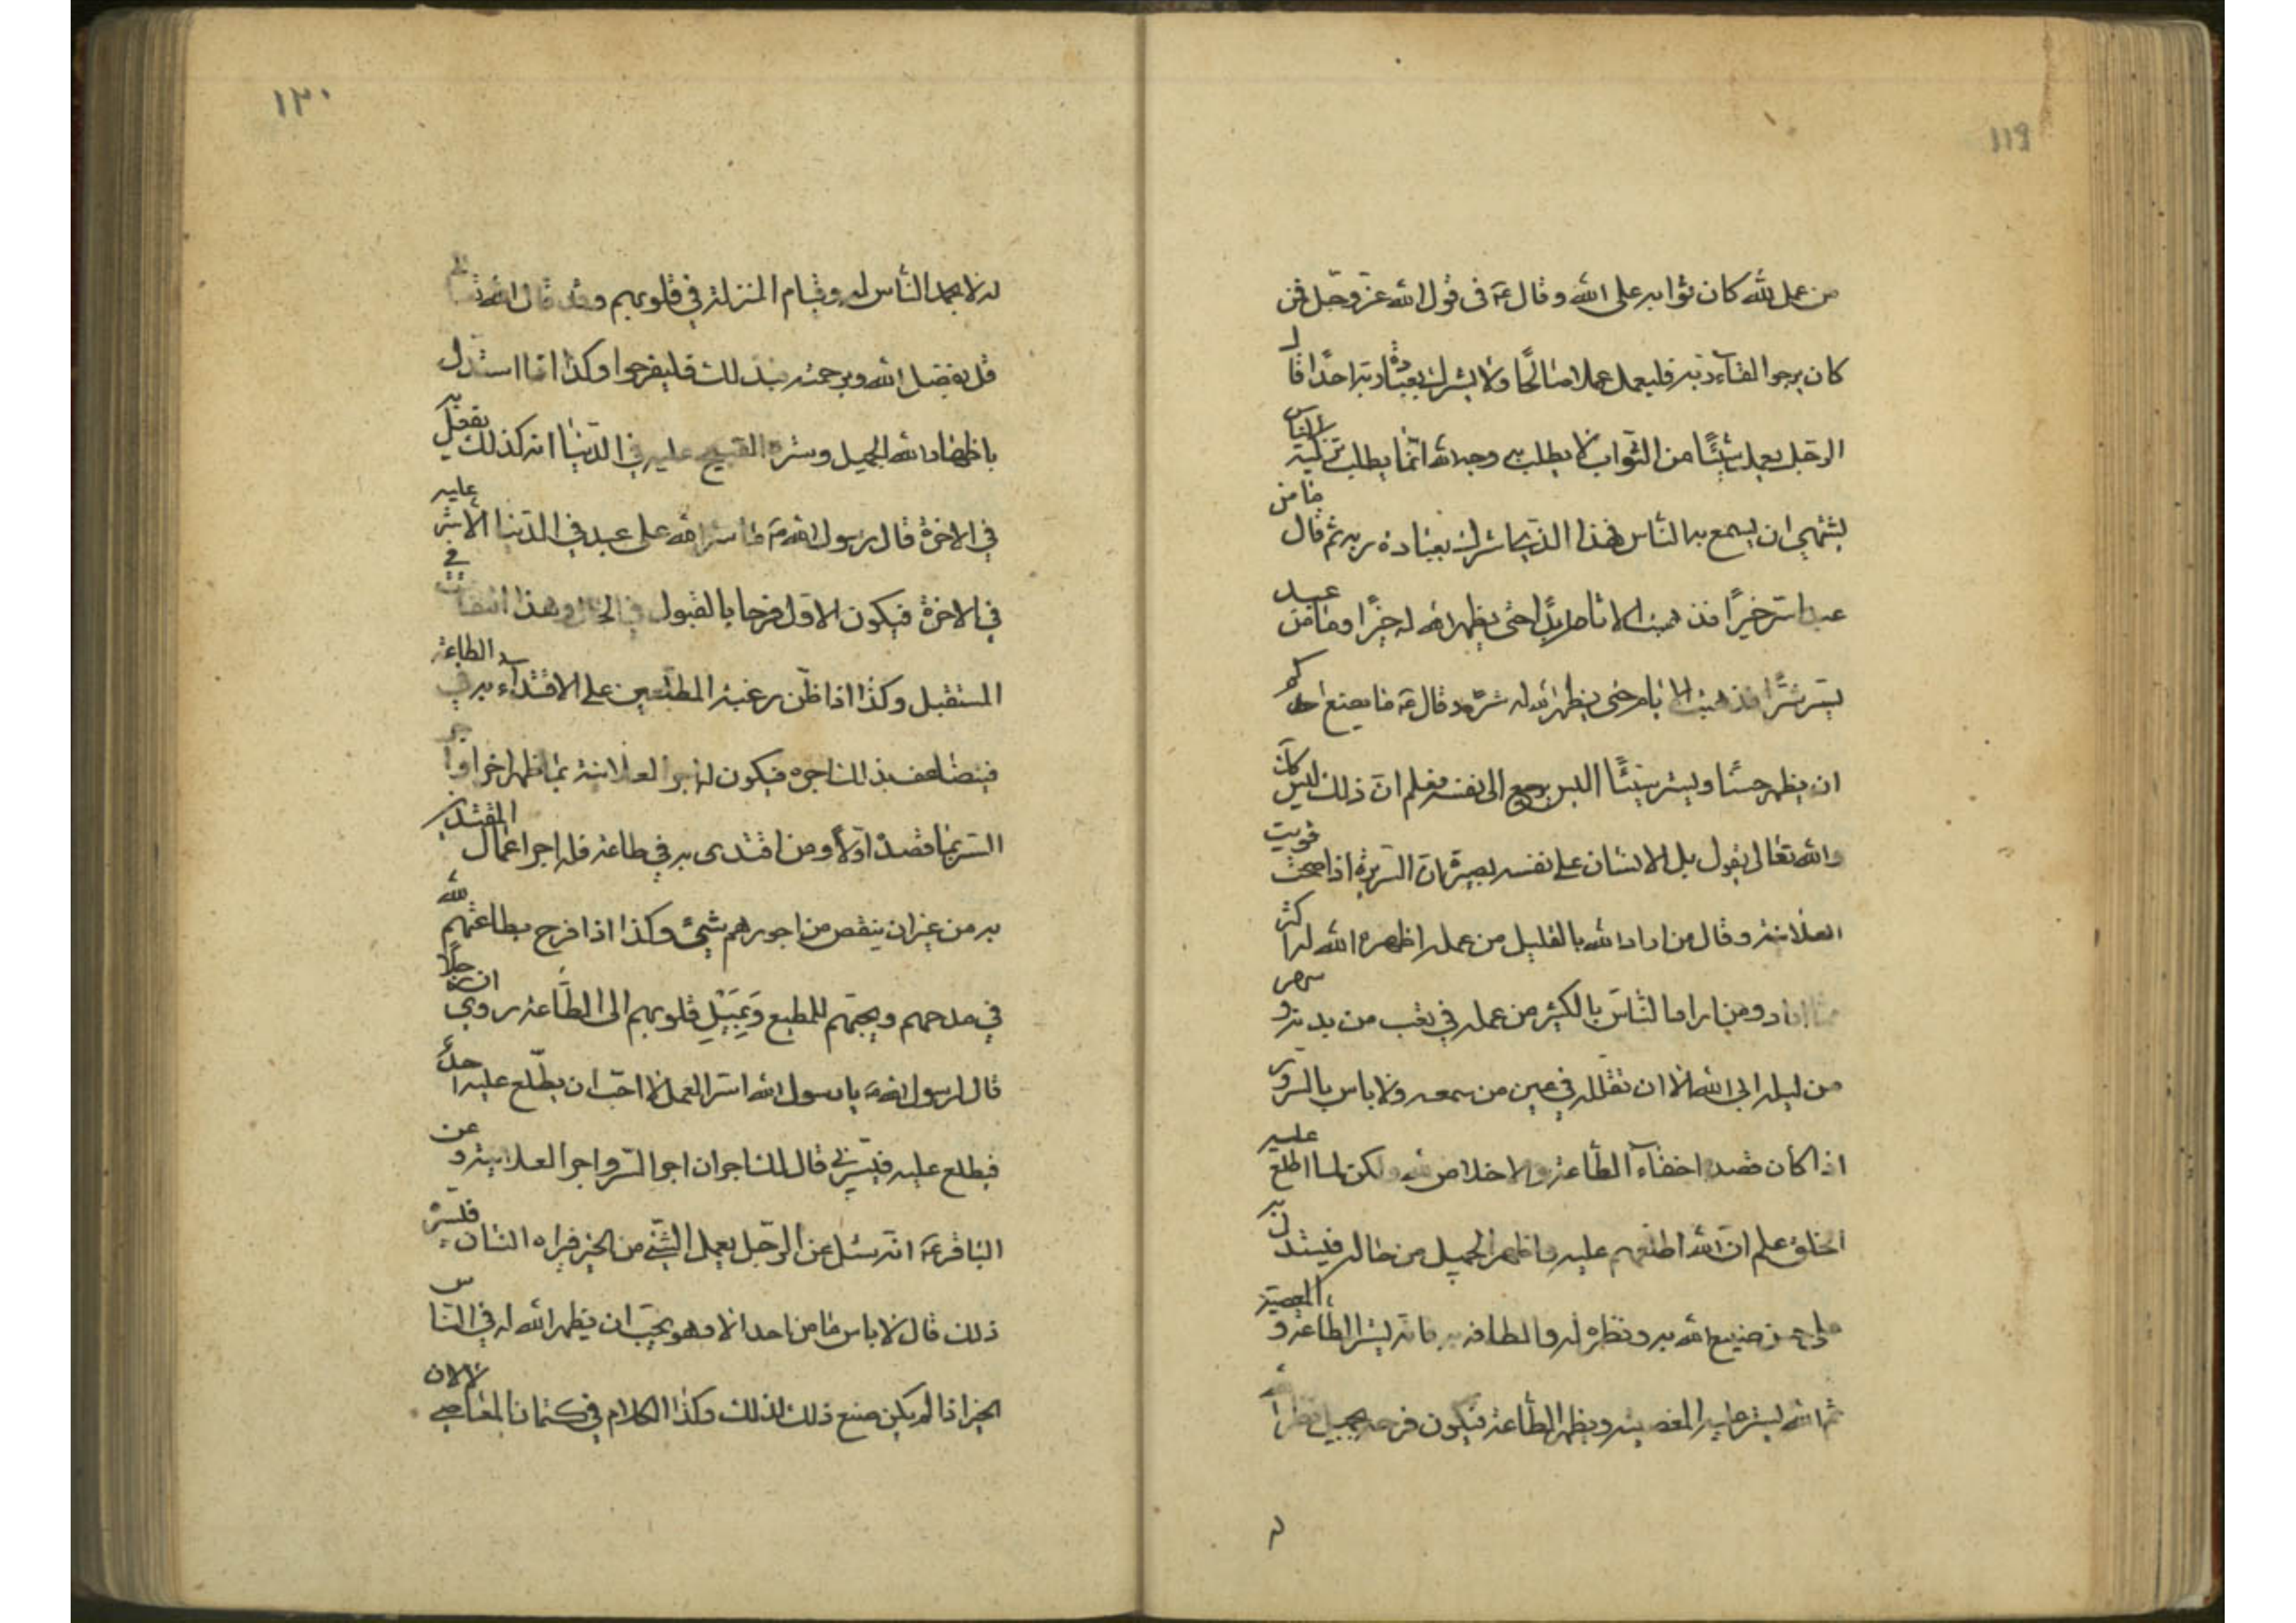 119
من عمل لله كان ثوابه على الله و قال ع في قول الله عز وجل فمن
كان يرجوا لقاء ربه فليعمل عملا صالحًا ولا يشرك بعبادة ربه احدًا قال
الرجل يعمل شيئًا من الثواب لا يطلب به وجه الله انما يطلب تزكية الناس
يشتهي ان يسمع به الناس فهذا الذي اشرك بعبادة ربه ثم قال ما من
عبد اسر خيرًا فذهبت الايام ابدًا حتى يظهر الله له خيرًا وما من عبد
يسر شرًا فذهبت الايام حتى يظهر الله له شرا وقال ع ما يصنع احدكم
ان يظهر حسنًا ويسر سيئًا اليس يرجع الى نفسه فيعلم ان ذلك ليس كذلك
والله تعالى يقول بل الانسان على نفسه بصيرة ان السريرة اذا صحت قويت
العلانية وقال من اراد الله بالقليل من عمله اظهره الله له اكثر
مما اراد ومن اراد الناس بالكثير من عمله في تعب من بدنه و سهر
من ليله ابى الله الا ان يقلله في عين من سمعه ولا باس بالسرور
اذا كان قصده اخفاء الطاعة والاخلاص لله ولكن لما اطلع عليه
الخلق علم ان الله اطلعهم عليه واظهر الجميل من حاله فيستدل به
على حسن صنيع الله به ونظره له والطافه به فانه يستر الطاعة و المعصية
ثم الله يستر عليه المعصية ويظهر الطاعة فيكون فرحه بجميل نظر الله
١٢٠
له لا بحمد الناس له وقيام المنزلة في قلوبهم وقد قال الله تعالى
قل بفضل الله وبرحمته فبذلك فليفرحوا وكذا اذا استدل
باظهار الله الجميل وستره القبيح عليه في الدنيا انه كذلك يفعل به
في الاخرة قال رسول الله ص ما ستر الله على عبد في الدنيا الا ستر عليه
في الاخرة فيكون الاول فرحا بالقبول في الحال وهذا التفات في
المستقبل وكذا اذا ظن رغبة المطلعين على الاقتداء به في الطاعة
فيتضاعف بذلك اجره فيكون له اجر العلانية بما اظهر اخرا واجر
السر بما قصده اولًا ومن اقتدى به في طاعة فله اجر اعمال المقتدين
به من غير ان ينقص من اجورهم شيئ وكذا اذا فرح بطاعتهم لله
في مدحهم وبحبهم للمطيع وَبِمَيْلِ قلوبهم الى الطاعة روي ان رجلًا
قال لرسول الله ص يا رسول الله اسر العمل لا احب ان يطلع عليه احدٌ
فيطلع عليه فيسرني قال لك اجران اجر السر واجر العلانية و عن
الباقر ع انه سئل عن الرجل يعمل الشيئ من الخير فيراه انسان فيسره
ذلك قال لا باس ما من احد الا وهو يحب ان يظهر الله له في الناس
الخير اذا لم يكن صنع ذلك لذلك وكذا الكلام في كتمان المعاصي لا لان